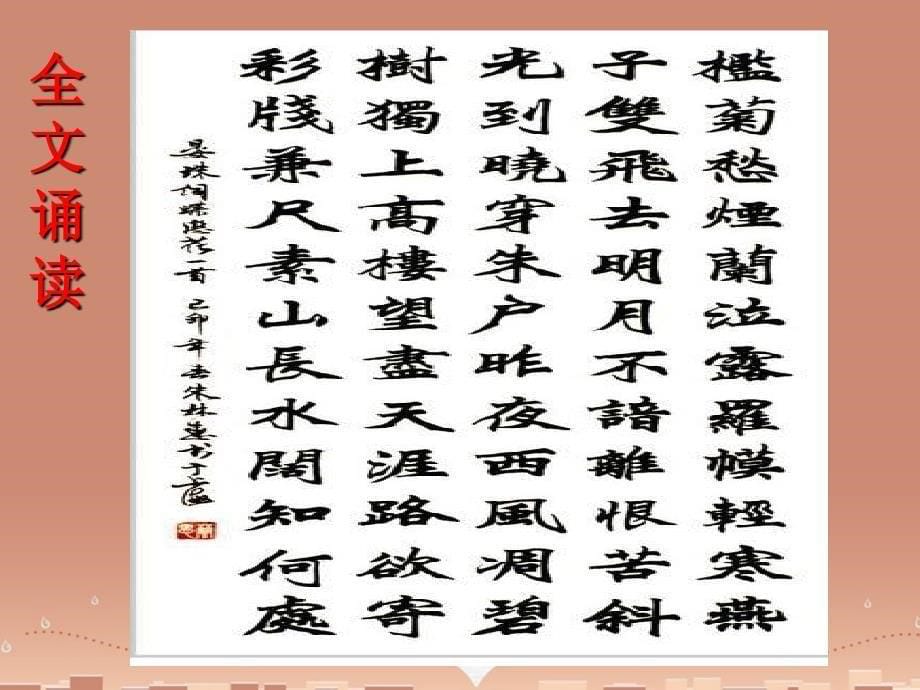 全文诵读
檻菊愁煙蘭泣露羅幙輕寒燕
子雙飛去明月不諳離恨苦斜
光到曉穿朱户昨夜西風凋碧
樹獨上高樓望盡天涯路欲寄
彩牋兼尺素山長水闊知何處
晏殊詞蝶恋花一首 己卯年